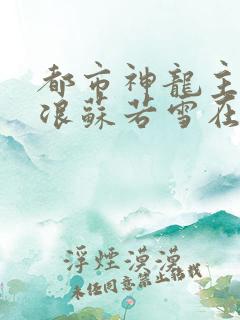 都市神龍主
浪蘇若雪在
浮煙漠漠
未任同意禁止转载